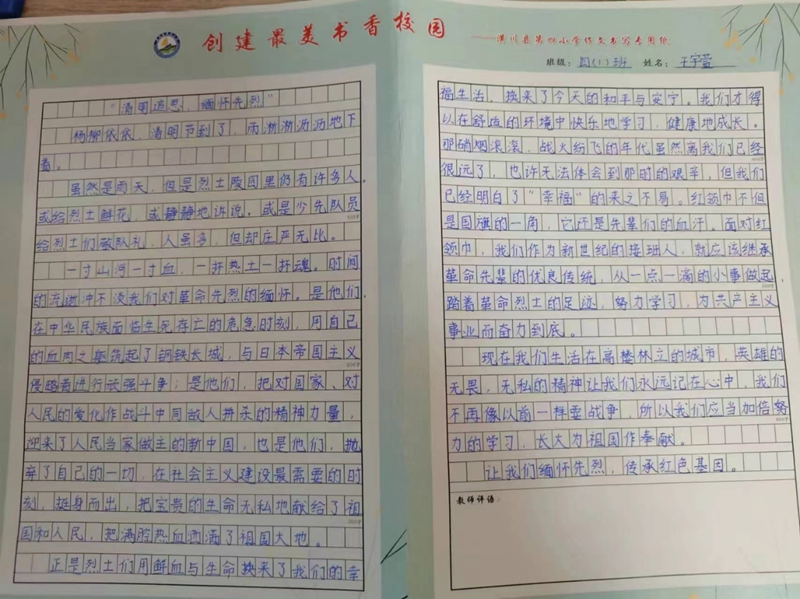 创建最美书香校园
——潢川县第四小学作文书写专用纸
班级：四(1)班 姓名：王宇萱
"清明追思，缅怀先烈"
杨柳依依，清明节到了，雨淅淅沥沥地下
着。
虽然是雨天，但是烈士陵园里仍有许多人。
或给烈士鲜花，或静静地诉说，或是少先队员
给烈士们敬队礼，人虽多，但却庄严无比。
一寸山河一寸血，一抔热土一抔魂。时间
的流逝冲不淡我们对革命先烈的缅怀。是他们，
在中华民族面临生死存亡的危急时刻，用自己
的血肉之躯筑起了钢铁长城，与日本帝国主义
侵略者进行顽强斗争；是他们，把对国家、对
人民的爱化作战斗中同敌人拼杀的精神力量，
迎来了人民当家做主的新中国，也是他们，抛
弃了自己的一切，在社会主义建设最需要的时
刻，挺身而出，把宝贵的生命无私地献给了祖
国和人民，把满腔热血洒满了祖国大地。
正是烈士们用鲜血与生命换来了我们的幸
福生活，换来了今天的和平与安宁。我们才得
以在舒适的环境中快乐地学习，健康地成长。
那硝烟滚滚，战火纷飞的年代虽然离我们已经
很远了，也许无法体会到那时的艰辛，但我们
已经明白了"幸福"的来之不易。红领巾不但
是国旗的一角，它还是先辈们的血汗。面对红
领巾，我们作为新世纪的接班人，就应该继承
革命先辈的优良传统，从一点一滴的小事做起，
踏着革命烈士的足迹，努力学习，为共产主义
事业而奋力到底。
现在我们生活在高楼林立的城市，英雄的
无畏，无私的精神让我们永远记在心中，我们
不再像以前一样要战争，所以我们应当加倍努
力的学习，长大为祖国作奉献。
让我们缅怀先烈，传承红色基因。
教师评语：